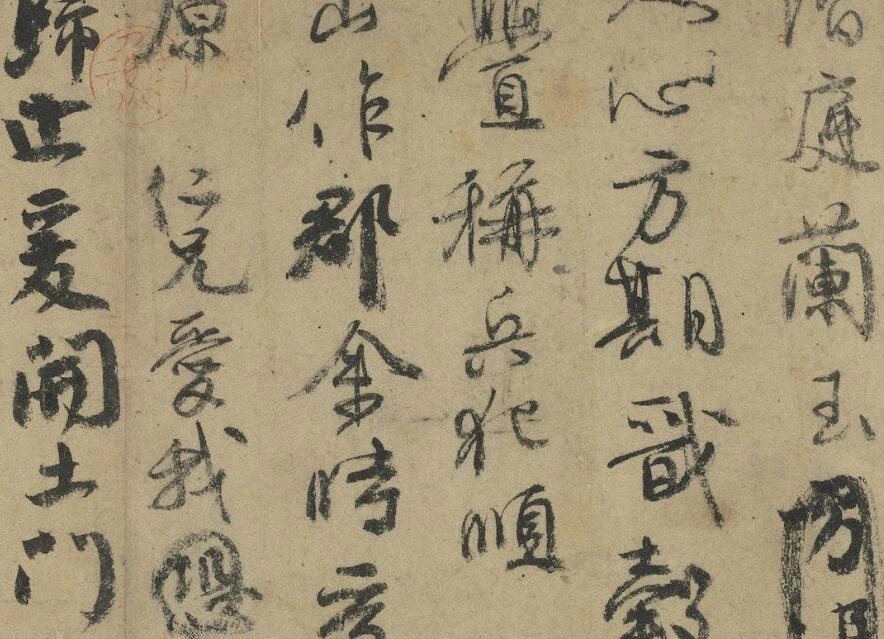 階庭蘭玉方
心方期戩穀
釁稱兵犯順
山作郡余時受
原仁兄愛我恐
歸止爰開土門